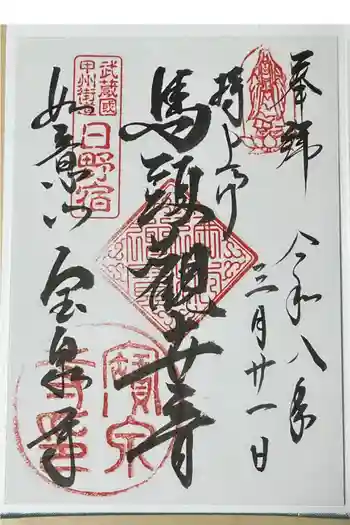 奉拝
令和八年
三月廿一日
持上げ
馬頭観世音
武蔵國
甲州街道
日野宿
如意山
宝泉寺
寶泉
寺印